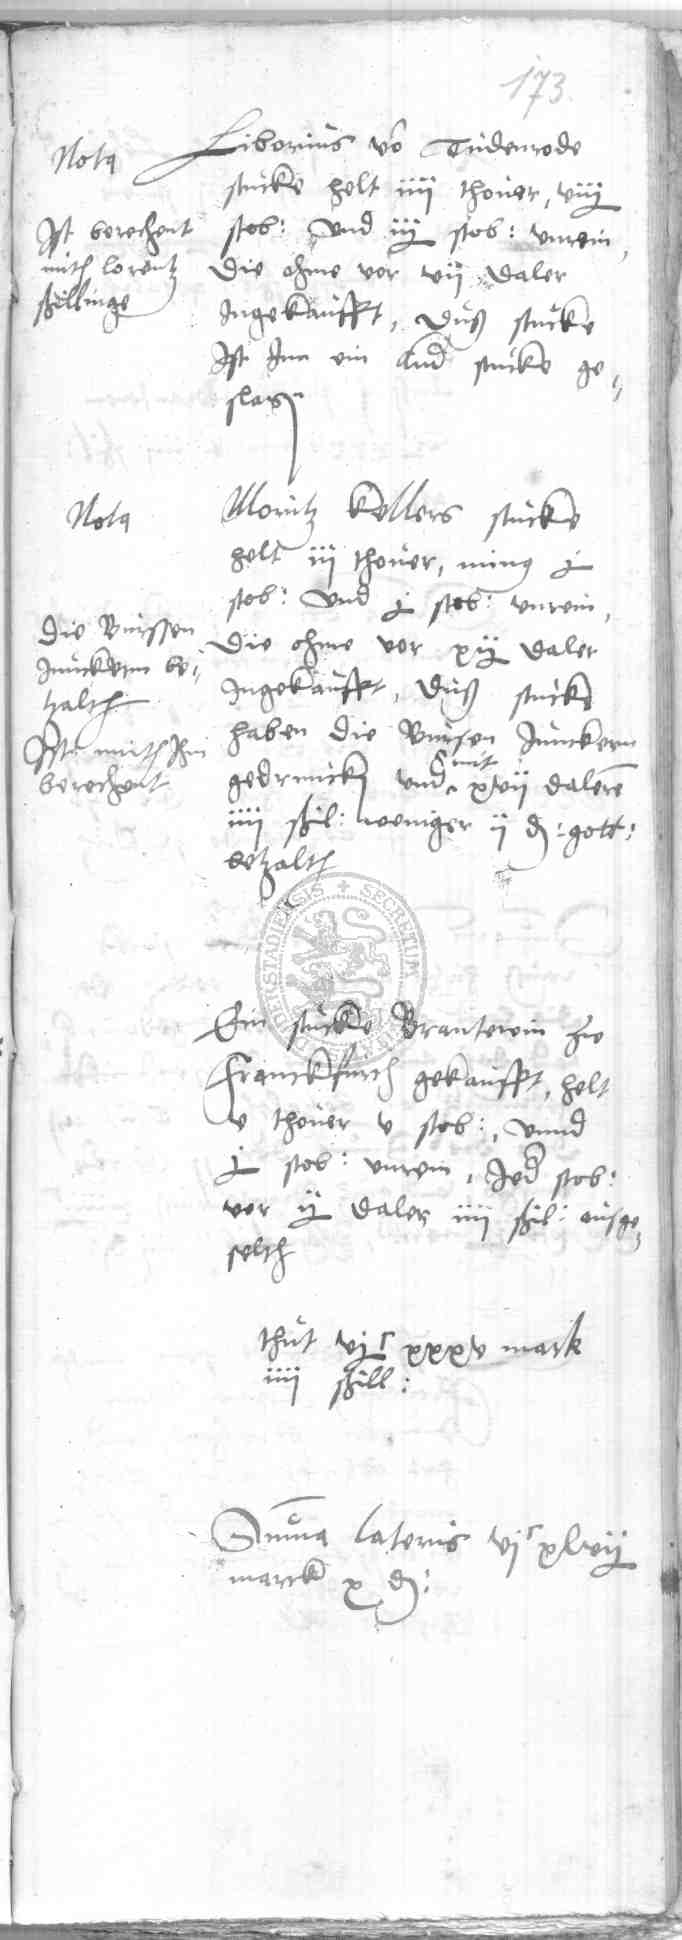 173.
Nota
Liborius vo Tudenrode
stucke helt iiii thover, viij
stob: und iij stob: unrein,
die ohme vor vii daler
Ingekaufft, duß stucke
Ist Inn ein And stucke ge-,
slag
Ist berechent
mith lorentz
schillinge
Nota
Moritz Kellers stucke
helt iii thover, min9 j
stob: Und j stob: unrein,
die ohme vor xij daler
Ingekaufft, duß stucke
haben die Bursen Junckern
gedruncken und mit xvii daleren
iiii schil: weniger ij d: gott:
betzalth
die Burssen
Junckern be-,
tzalth
Ist mith Ihn
berechent
SECRETUM
Ein stucke Brantewin zu
Franckfurth gekaufft, helt
v thover v stob:, unnd
j stob: unrein, Jed stob:
vor ij daler iiii schil: ausge,
selth
thut vjc xxxv mark
iiii schill:
Suma lateris vjc xlvij
marck x d: